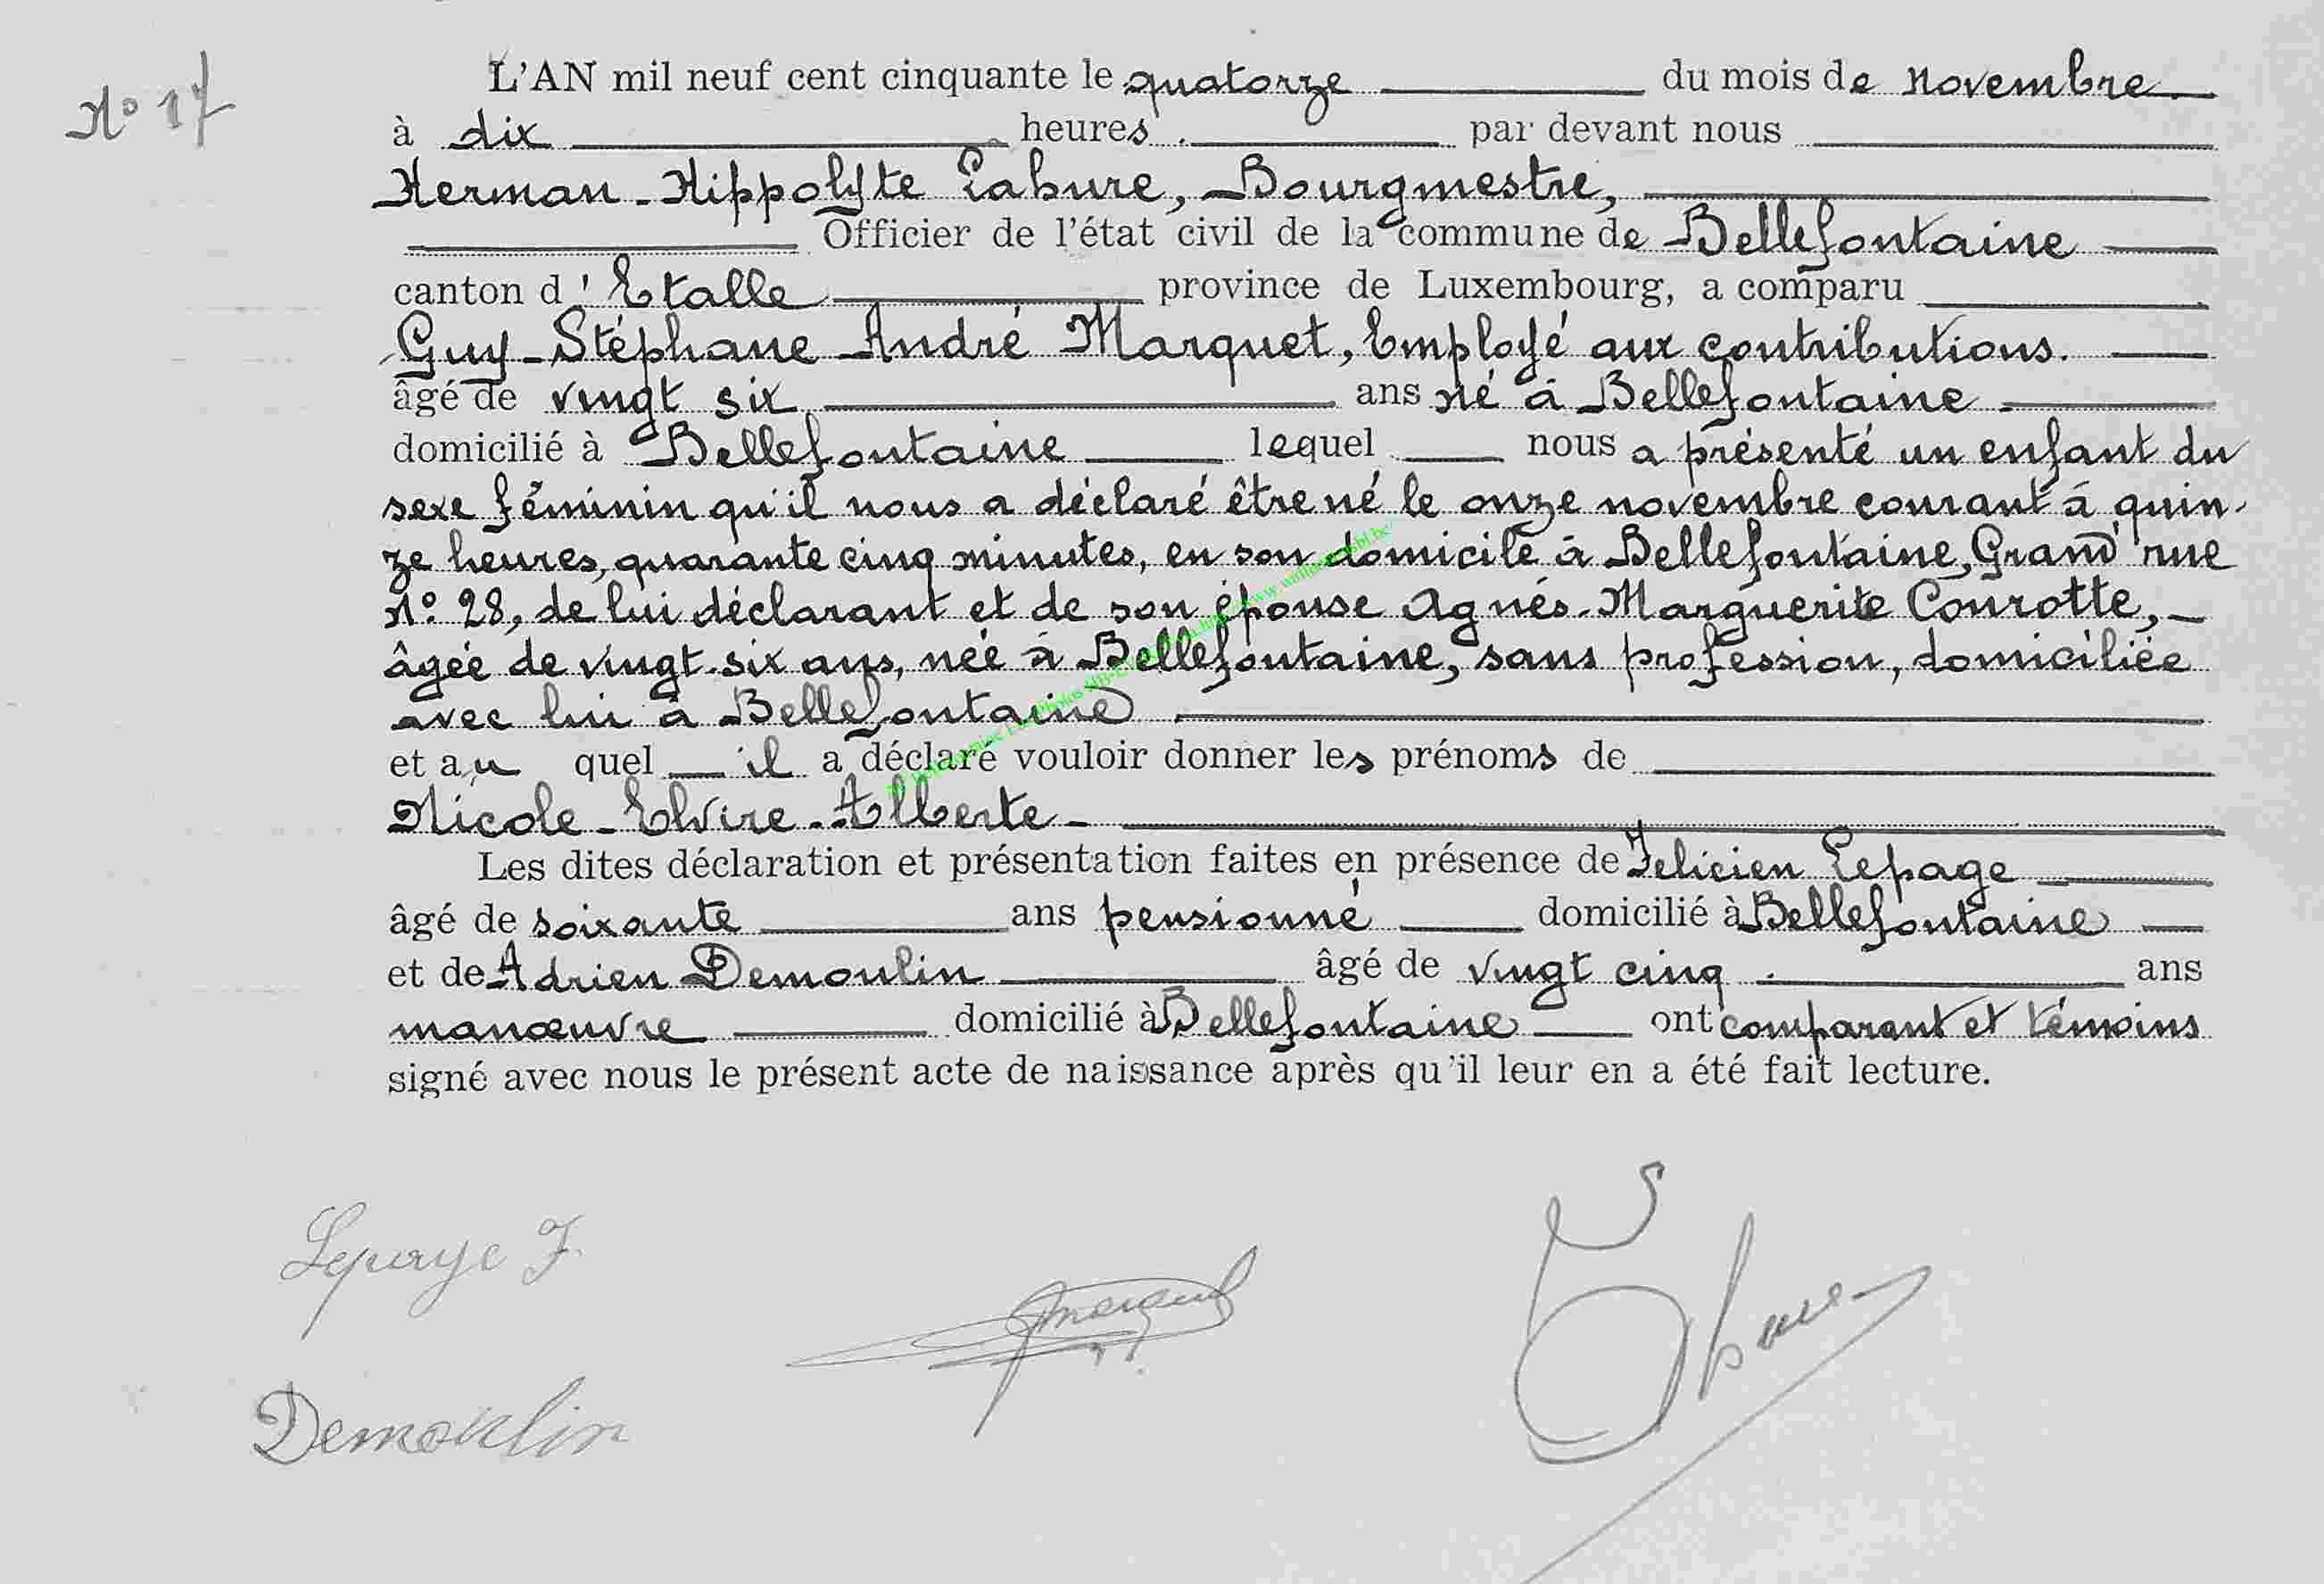 N° 17
L'AN mil neuf cent cinquante le quatorze du mois de novembre
à dix heures par devant nous
Herman-Hippolyte Lahure, Bourgmestre,
Officier de l'état civil de la commune de Bellefontaine
canton d'Etalle province de Luxembourg, a comparu
Guy-Stéphane André Marquet, Employé aux contributions.
âgé de vingt six ans né à Bellefontaine
domicilié à Bellefontaine lequel nous a présenté un enfant du
sexe féminin qu'il nous a déclaré être né le onze novembre courant à quin-
ze heures, quarante cinq minutes, en son domicile à Bellefontaine, Grand'rue
N° 28, de lui déclarant et de son épouse Agnés-Marguerite Conrotte,
âgée de vingt-six ans, née à Bellefontaine, sans profession, domiciliée
avec lui à Bellefontaine
et au quel il a déclaré vouloir donner les prénoms de
Nicole-Elvire-Alberte-
Les dites déclaration et présentation faites en présence de Felicien Lepage
âgé de soixante ans pensionné domicilié à Bellefontaine
et de Adrien Demoulin âgé de vingt cinq ans
manœuvre domicilié à Bellefontaine ont comparant et témoins
signé avec nous le présent acte de naissance après qu'il leur en a été fait lecture.
Lepage F.
Marquet
Lahure
Demoulin